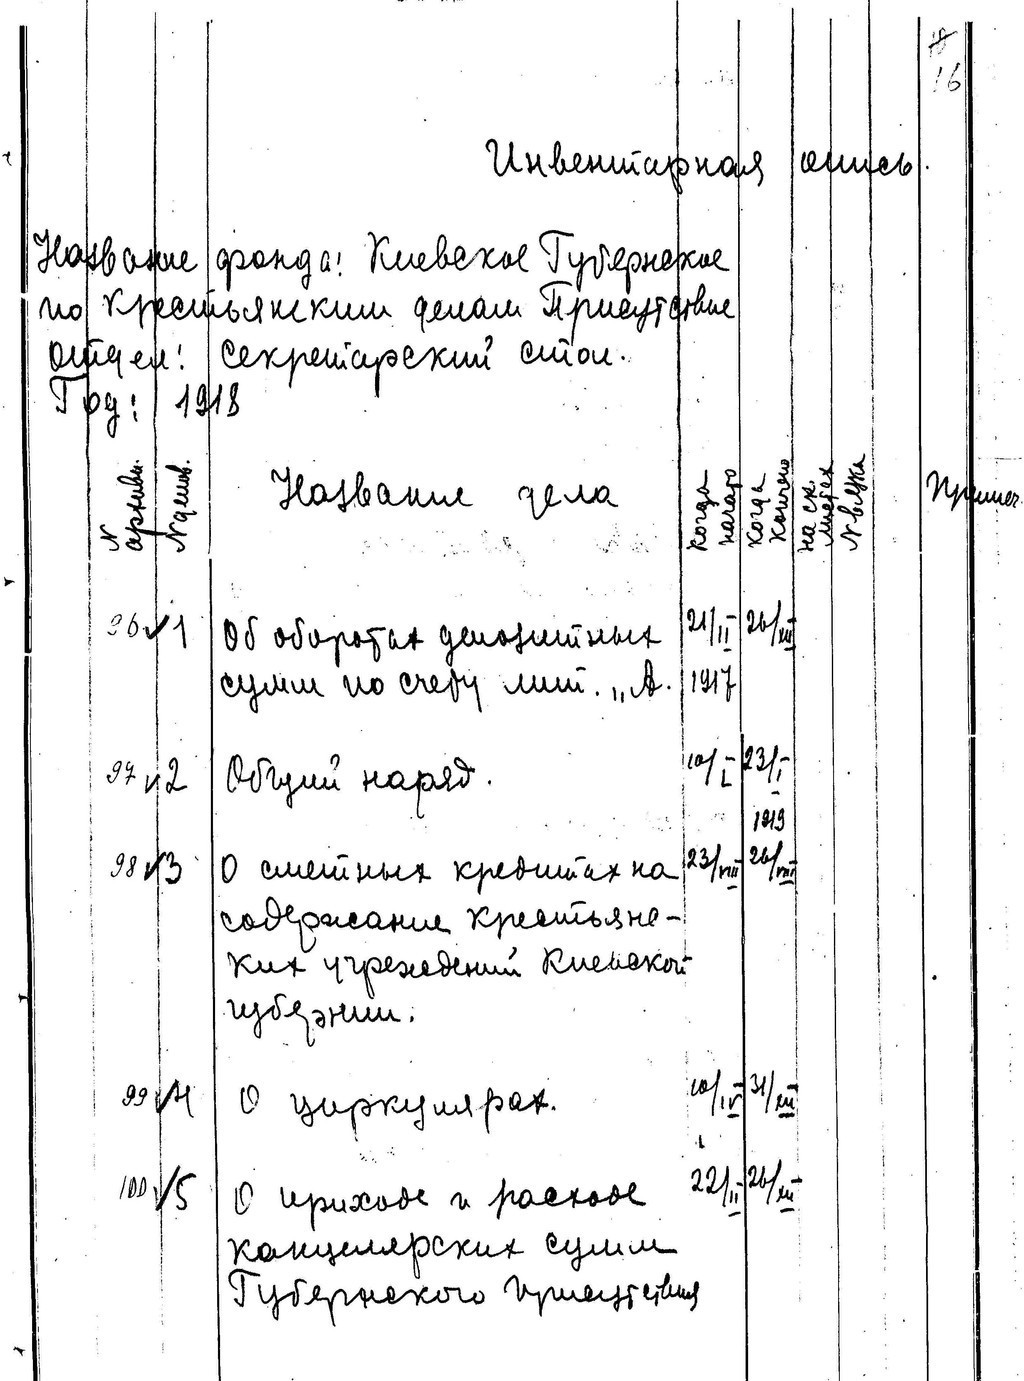 18
16
Инвентарная опись.
Название фонда: Киевское Губернское
по крестьянским делам Присутствие
отдел: секретарский стол.
Год: 1918
N архивн. N делов. Название дела когда начато когда кончено на ск. листах N вязка Примеч.
96 1 Об оборотах депозитных 21/II 26/XII
сумм по счету лит. „А. 1917
97 2 Общий наряд. 10/I 23/I
1919
98 3 О сметных кредитах на 23/VIII 26/VIII
содержание крестьянс-
ких учреждений Киевской
губернии.
99 4 О циркулярах. 10/IV 31/XII
100 5 О приходе и расходе 22/II 26/XII
канцелярских сумм
Губернского присутствия